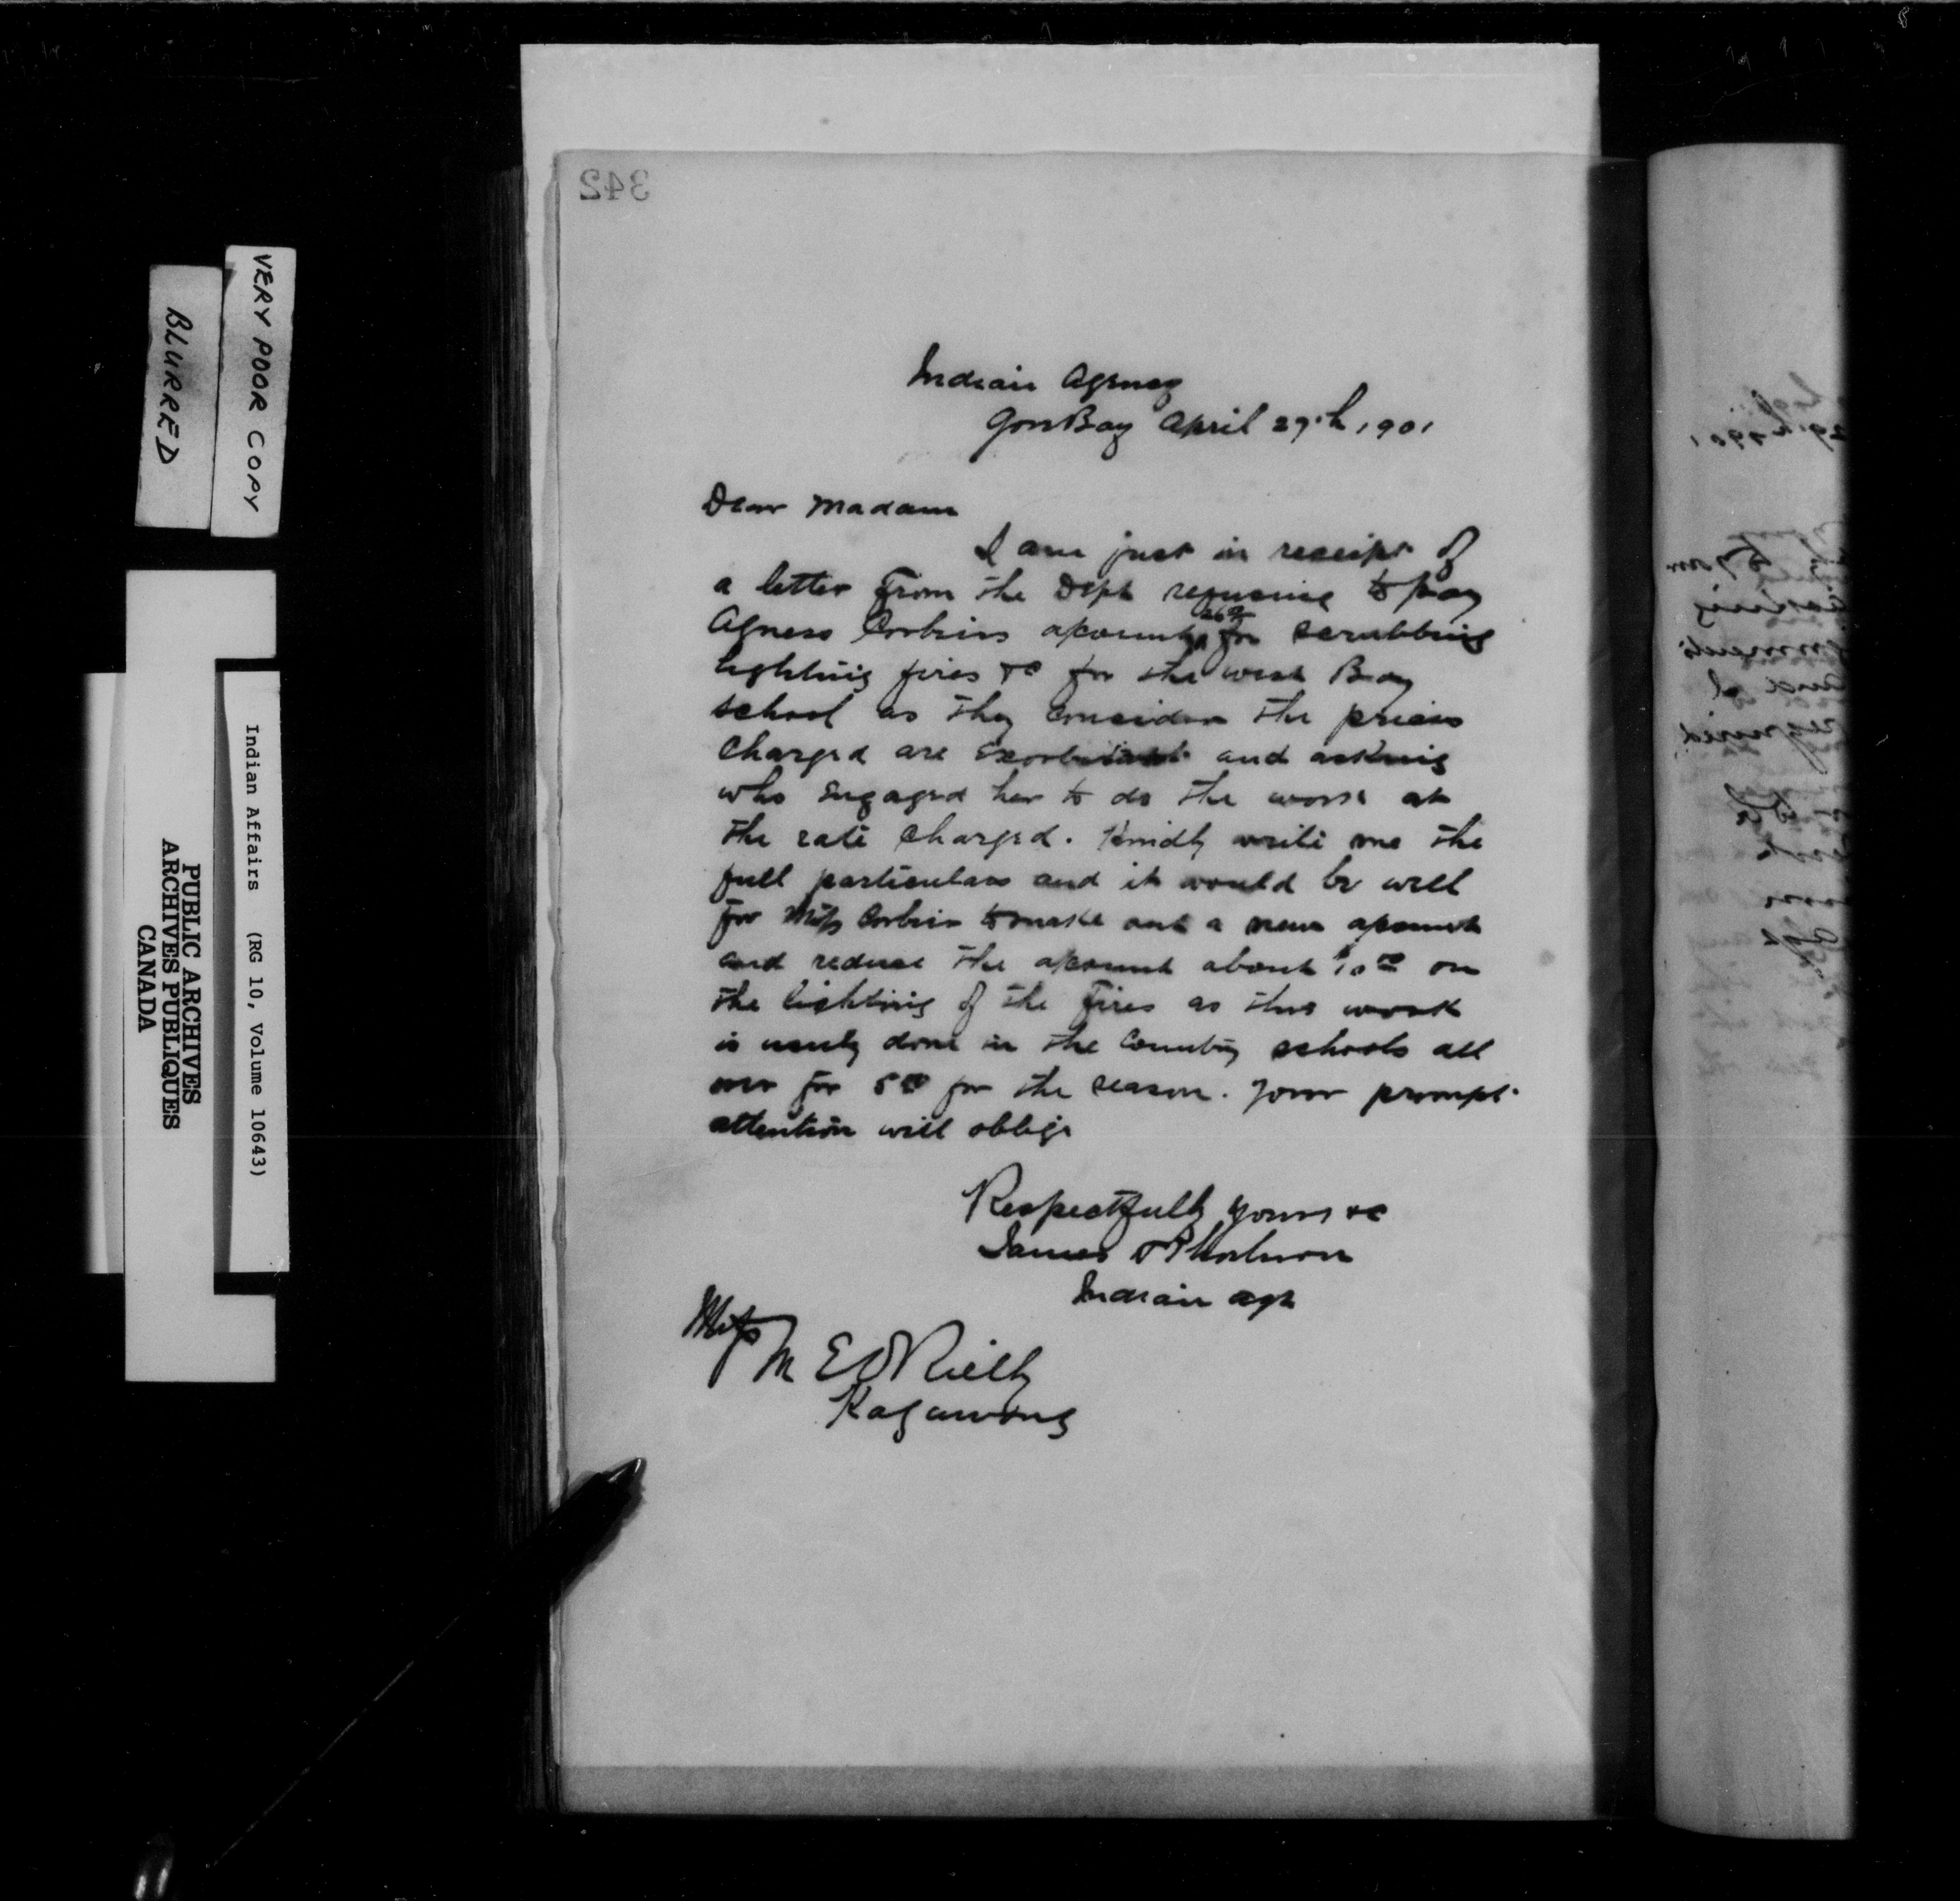 342
Indian Agency
Gore Bay April 29th, 1901
Dear Madam
I am just in receipt of
a letter From the Dept refusing to pay
Agness Corbiers account 26 for scrubbing
lighting fires &c for the west Bay
school as they consider the prices
Charged are Exorbitant and asking
who Engaged her to do the work at
the rate Charged. Kindly write me the
full particulars and it would be well
for Miss Corbier to make out a new account
and reduce the account about $10 00 on
the lighting of the Fires as this work
is usuly done in the Country schools all
over for 5 00 for the season. Your prompt
attention will oblige
Respectfully yours &c
James Thorburn
Indian agt
Miss M E O'Rielly
Kagawong
VERY POOR COPY
BLURRED
Indian Affairs (RG 10, Volume 10643)
PUBLIC ARCHIVES
ARCHIVES PUBLIQUES
CANADA